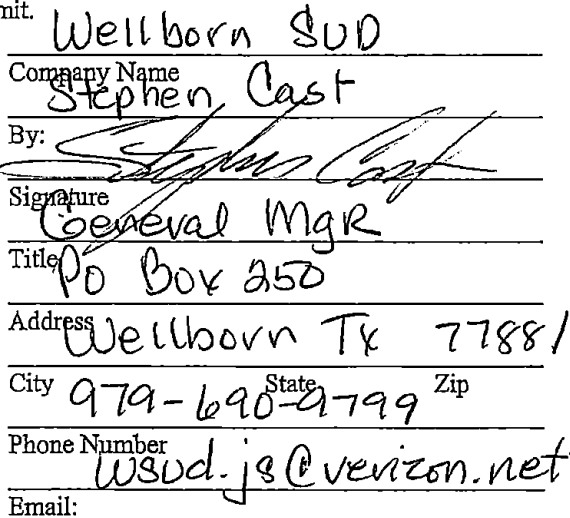 mit.
Wellborn SUD
Company Name
Stephen Cast
By:
Stephen Cast
Signature
General MgR
Title
PO Box 250
Address
Wellborn Tx 77881
City State Zip
979-690-9799
Phone Number
wsud.js@verizon.net
Email: